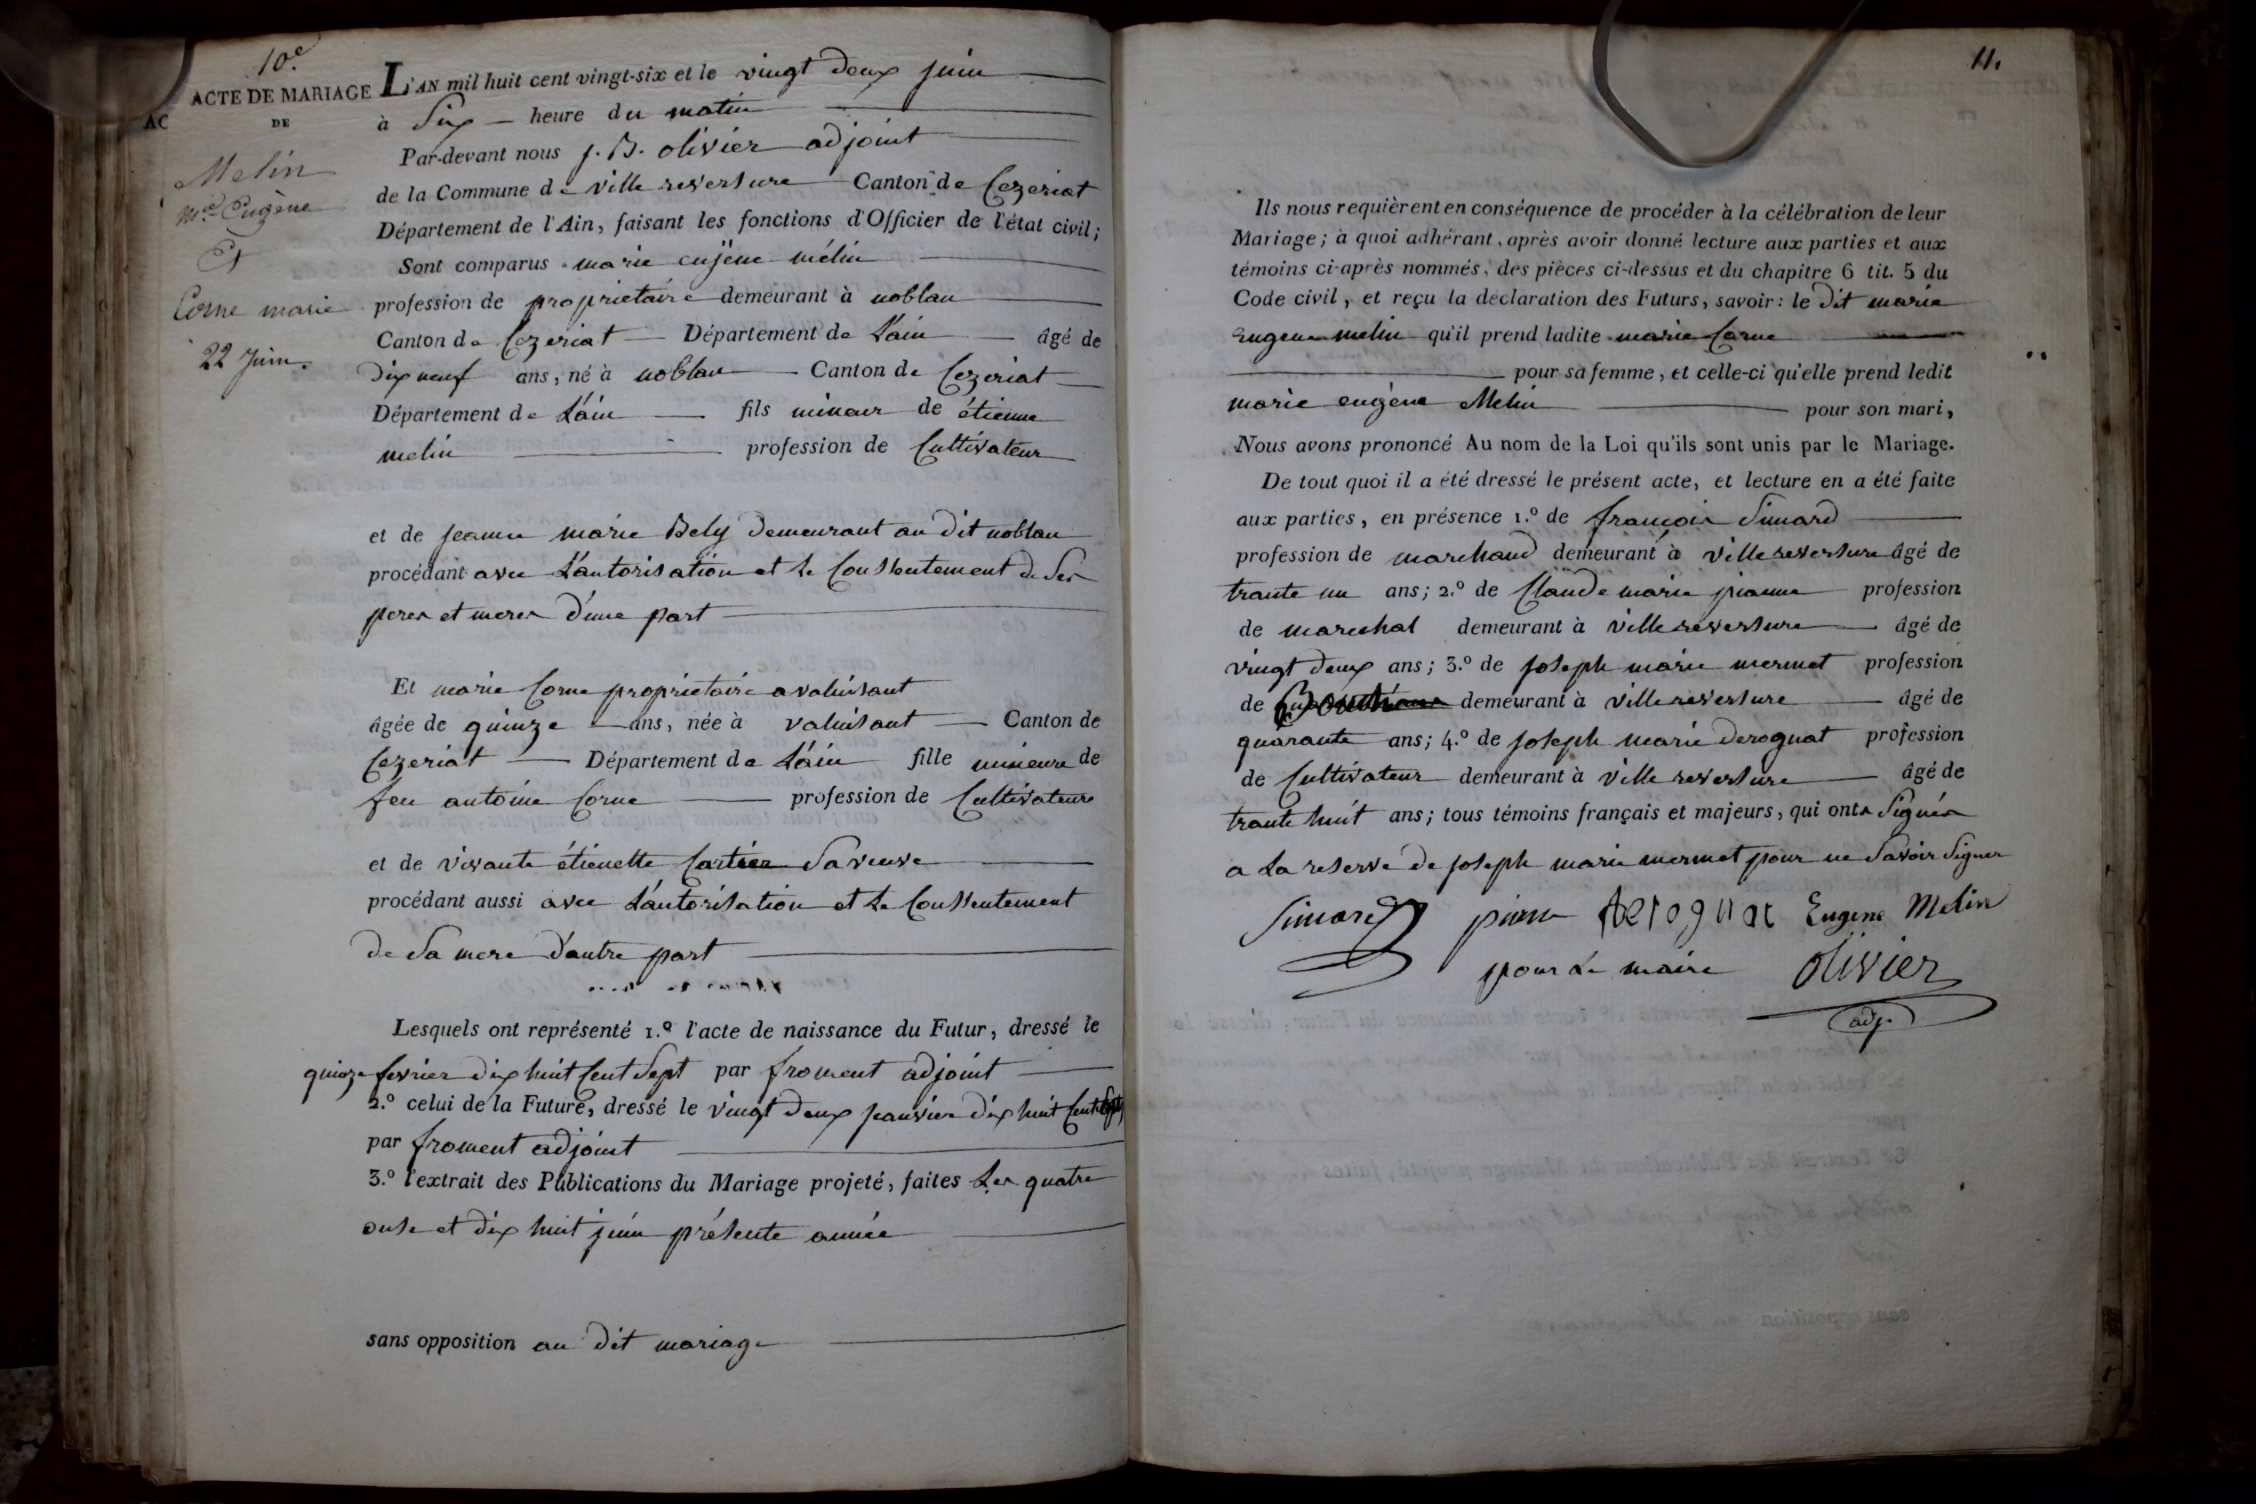 10.e
ACTE DE MARIAGE
AC
DE
Melin
m.ie Eugène
Et
Corne marie
22 Juin.
L'AN mil huit cent vingt-six et le vingt deux juin
à Six heure du matin
Par-devant nous j. B. olivier adjoint
de la Commune de ville reversure Canton de Cezeriat
Département de l'Ain, faisant les fonctions d'Officier de l'état civil;
Sont comparus marie eujene mélin
profession de proprietaire demeurant à noblan
Canton de Cezeriat Département de L'ain âgé de
dix neuf ans, né à noblan Canton de Cezeriat
Département de L'ain fils mineur de étienne
melin profession de Cultivateur
et de jeanne marie Bely demeurant au dit noblan
procédant avec L'autorisation et le Conssentement de Ses
peres et meres d'une part
Et marie Corne proprietaire a valuisant
âgée de quinze ans, née à valuisant Canton de
Cezeriat Département de L'ain fille mineure de
feu antoine Corne profession de Cultivateur
et de vivante étienette Cartier Sa veuve
procédant aussi avec L'autorisation et Le Conssentement
de Sa mere d'autre part
Lesquels ont représenté 1.º l'acte de naissance du Futur, dressé le
quinze fevrier dix huit Cent Sept par froment adjoint
2.º celui de la Future, dressé le vingt deux janvier dix huit Cent
par froment adjoint
3.º l'extrait des Publications du Mariage projeté, faites Les quatre
onse et dix huit juin présente année
sans opposition au dit mariage
11.
Ils nous requièrent en conséquence de procéder à la célébration de leur
Mariage; à quoi adhérant, après avoir donné lecture aux parties et aux
témoins ci-après nommés, des pièces ci-dessus et du chapitre 6 tit. 5 du
Code civil, et reçu la déclaration des Futurs, savoir: le dit marie
Eugene melin qu'il prend ladite marie Corne
pour sa femme, et celle-ci qu'elle prend ledit
marie eugène Melin pour son mari,
Nous avons prononcé Au nom de la Loi qu'ils sont unis par le Mariage.
De tout quoi il a été dressé le présent acte, et lecture en a été faite
aux parties, en présence 1.º de françois Simard
profession de marchand demeurant à ville reversure âgé de
trante un ans; 2.º de Claude marie pianne profession
de marechal demeurant à ville reversure âgé de
vingt deux ans; 3.º de joseph marie mermet profession
de demeurant à ville reversure âgé de
quarante ans; 4.º de joseph marie derognat profession
de Cultivateur demeurant à ville reversure âgé de
trante huit ans; tous témoins français et majeurs, qui ont Signés
a La reserve de joseph marie mermet pour ne Savoir Signer
Simard Derognat Eugene Melin
pour Le maire olivier
adj.